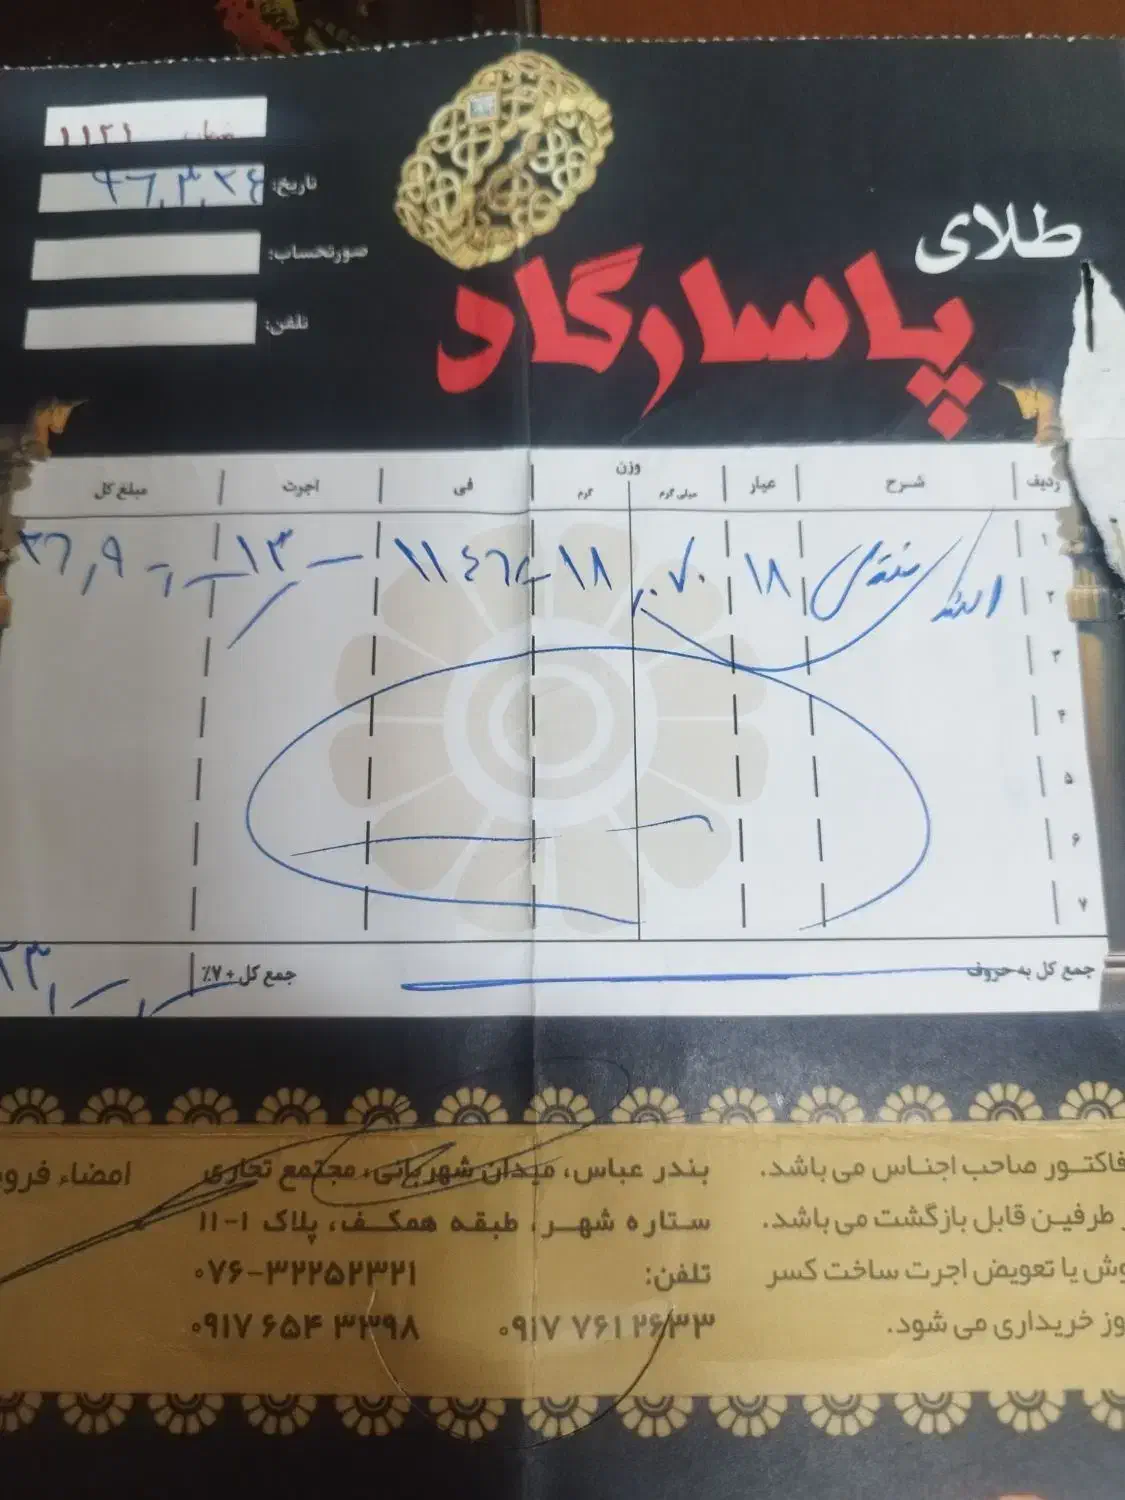 طلای
پاسارگاد
شماره: ۱۱۲۱
تاریخ: ۹۶,۳,۲۴
صورتحساب:
تلفن:
ردیف شرح عیار وزن میلی گرم گرم فی اجرت مبلغ کل
۱
۲ ۱۸ ۷۰ ۱۸ ۱۳
۳
۴
۵
۶
۷
جمع کل به حروف جمع کل + ۷٪
فاکتور صاحب اجناس می باشد.
طرفین قابل بازگشت می باشد.
یا تعویض اجرت ساخت کسر
خریداری می شود.
بندر عباس، میدان شهربانی، مجتمع تجاری
ستاره شهر، طبقه همکف، پلاک ۱-۱۱
تلفن: ۰۷۶-۳۲۲۵۲۳۲۱
۰۹۱۷ ۷۶۱ ۲۶۳۳ ۰۹۱۷ ۶۵۴ ۳۳۹۸
امضاء